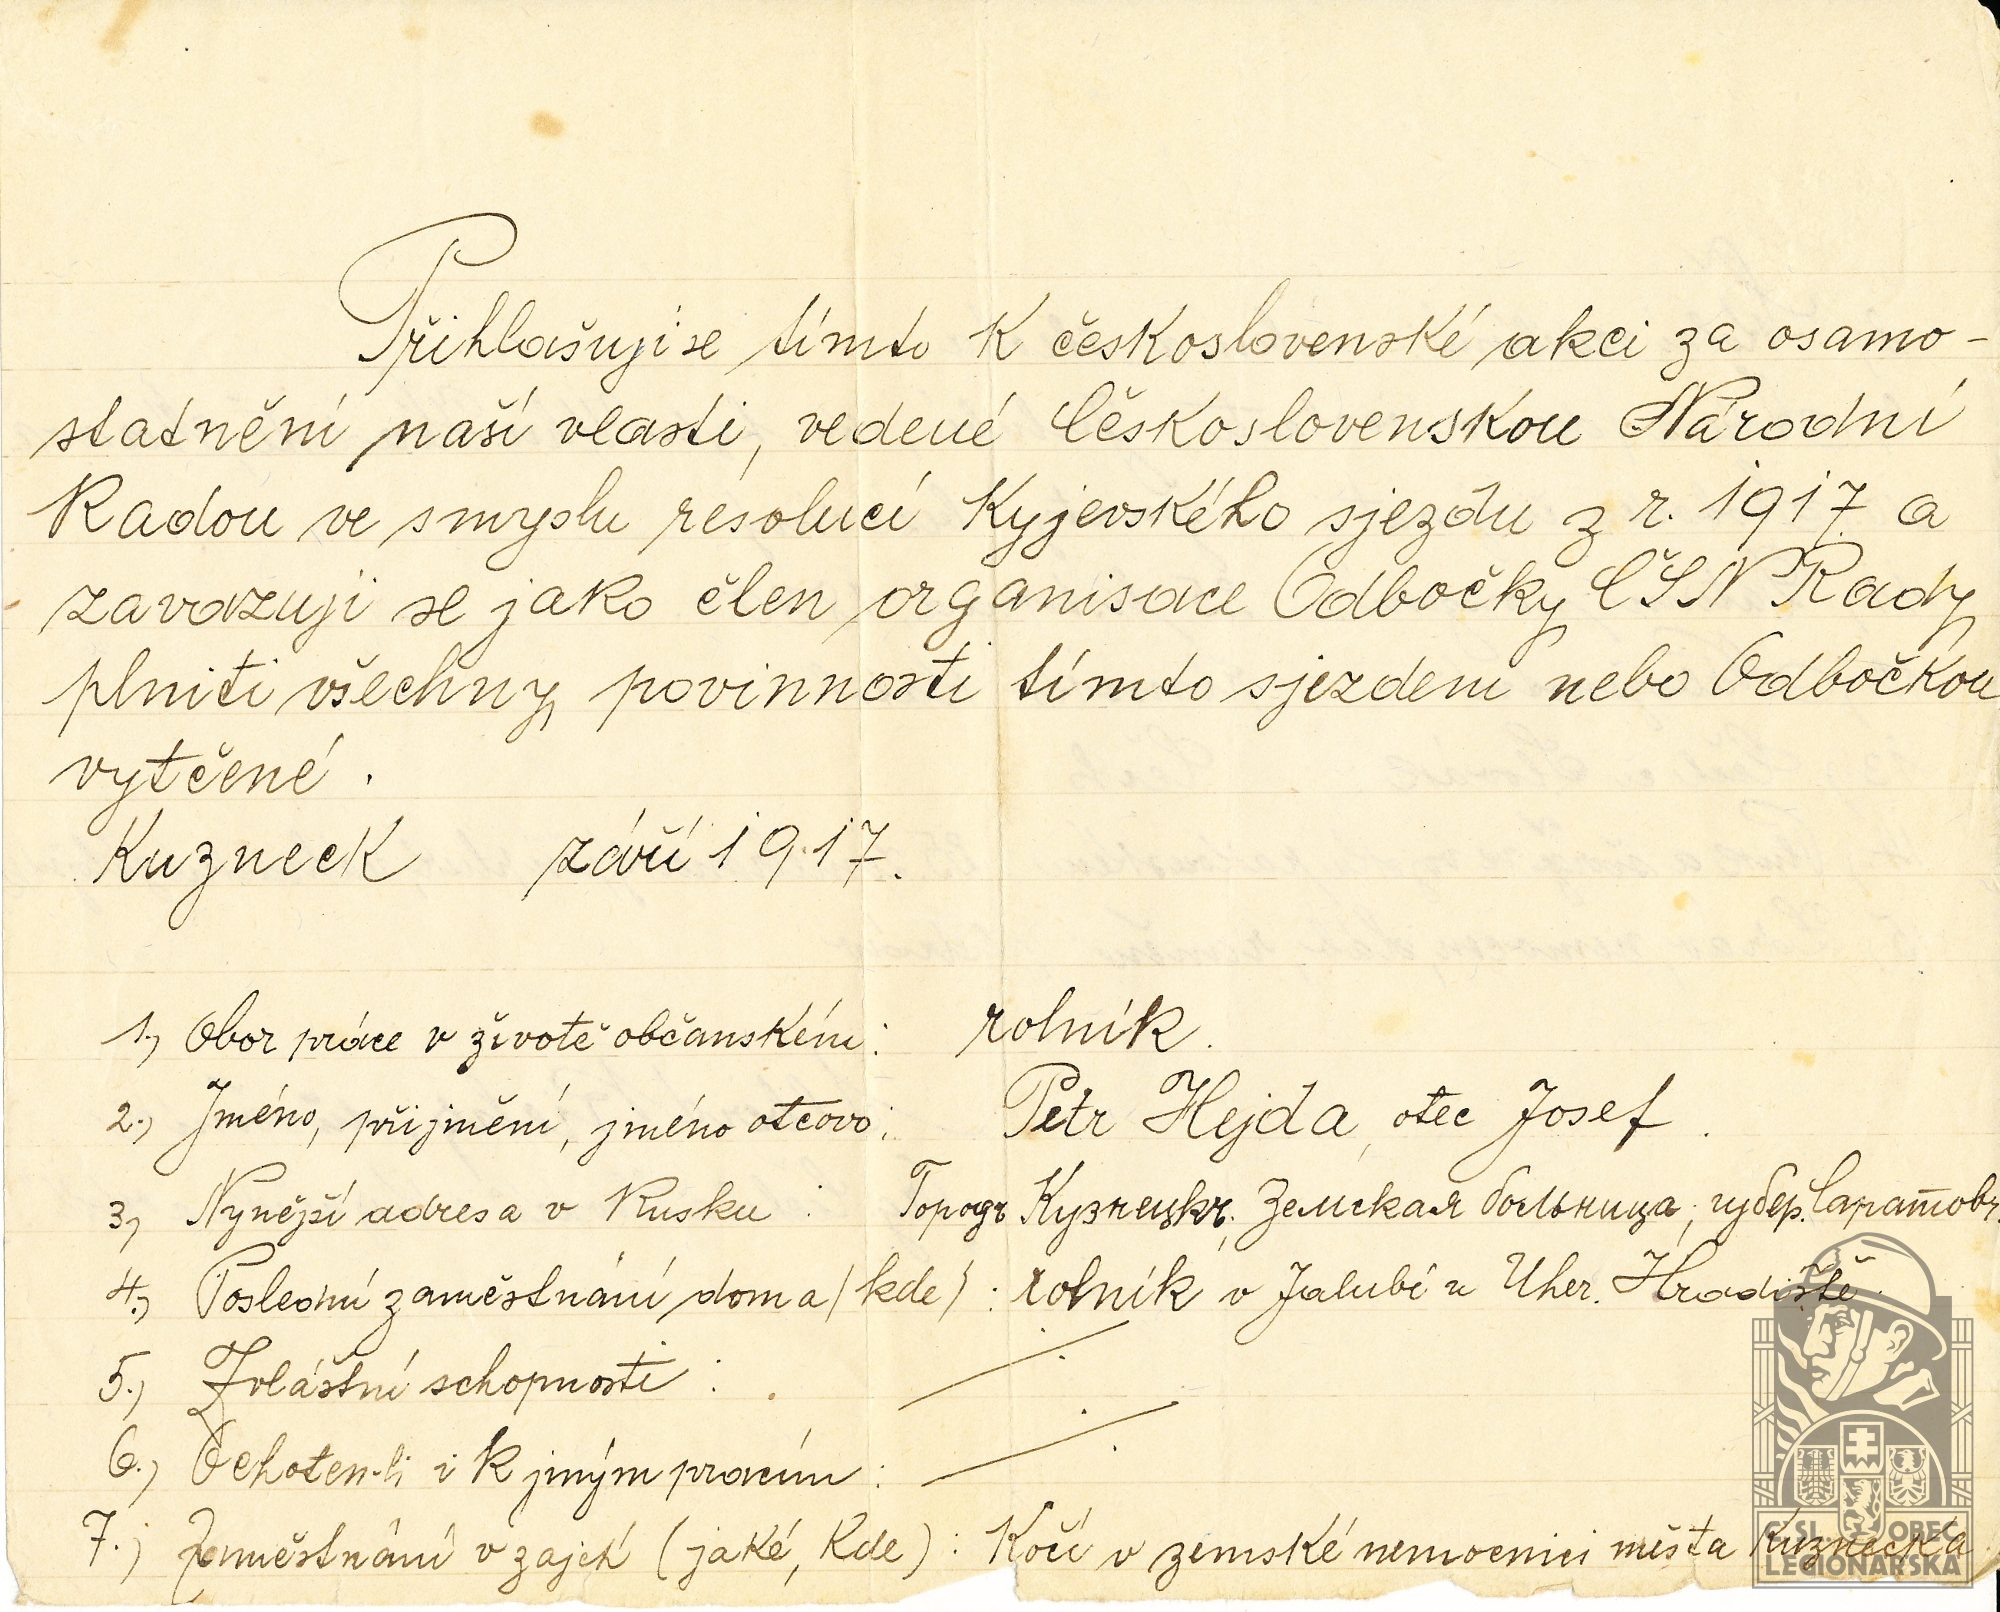 Přihlašuji se tímto k československé akci za osamo-
statnění naší vlasti, vedené Československou Národní
Radou ve smyslu resolucí Kyjevského sjezdu z r. 1917 a
zavazuji se jako člen organisace Odbočky ČSN Rady
plniti všechny povinnosti tímto sjezdem nebo Odbočkou
vytčené.
Kuzneck září 1917.
1., Obor práce v životě občanském: rolník.
2., Jméno, přijmění, jméno otcovo: Petr Hejda, otec Josef.
3, Nynější adresa v Rusku: Город Кузнецкъ. Земская больница, губер. Саратовъ.
4., Poslední zaměstnání doma (kde): rolník v Jalubí u Uher. Hradiště.
5., Zvláštní schopnosti:
6., Ochoten-li i k jiným pracím:
7., Zaměstnání v zajetí (jaké, kde): Kočí v zemské nemocnici města Kuznecka
ČSL. OBEC
LEGIONÁŘSKÁ